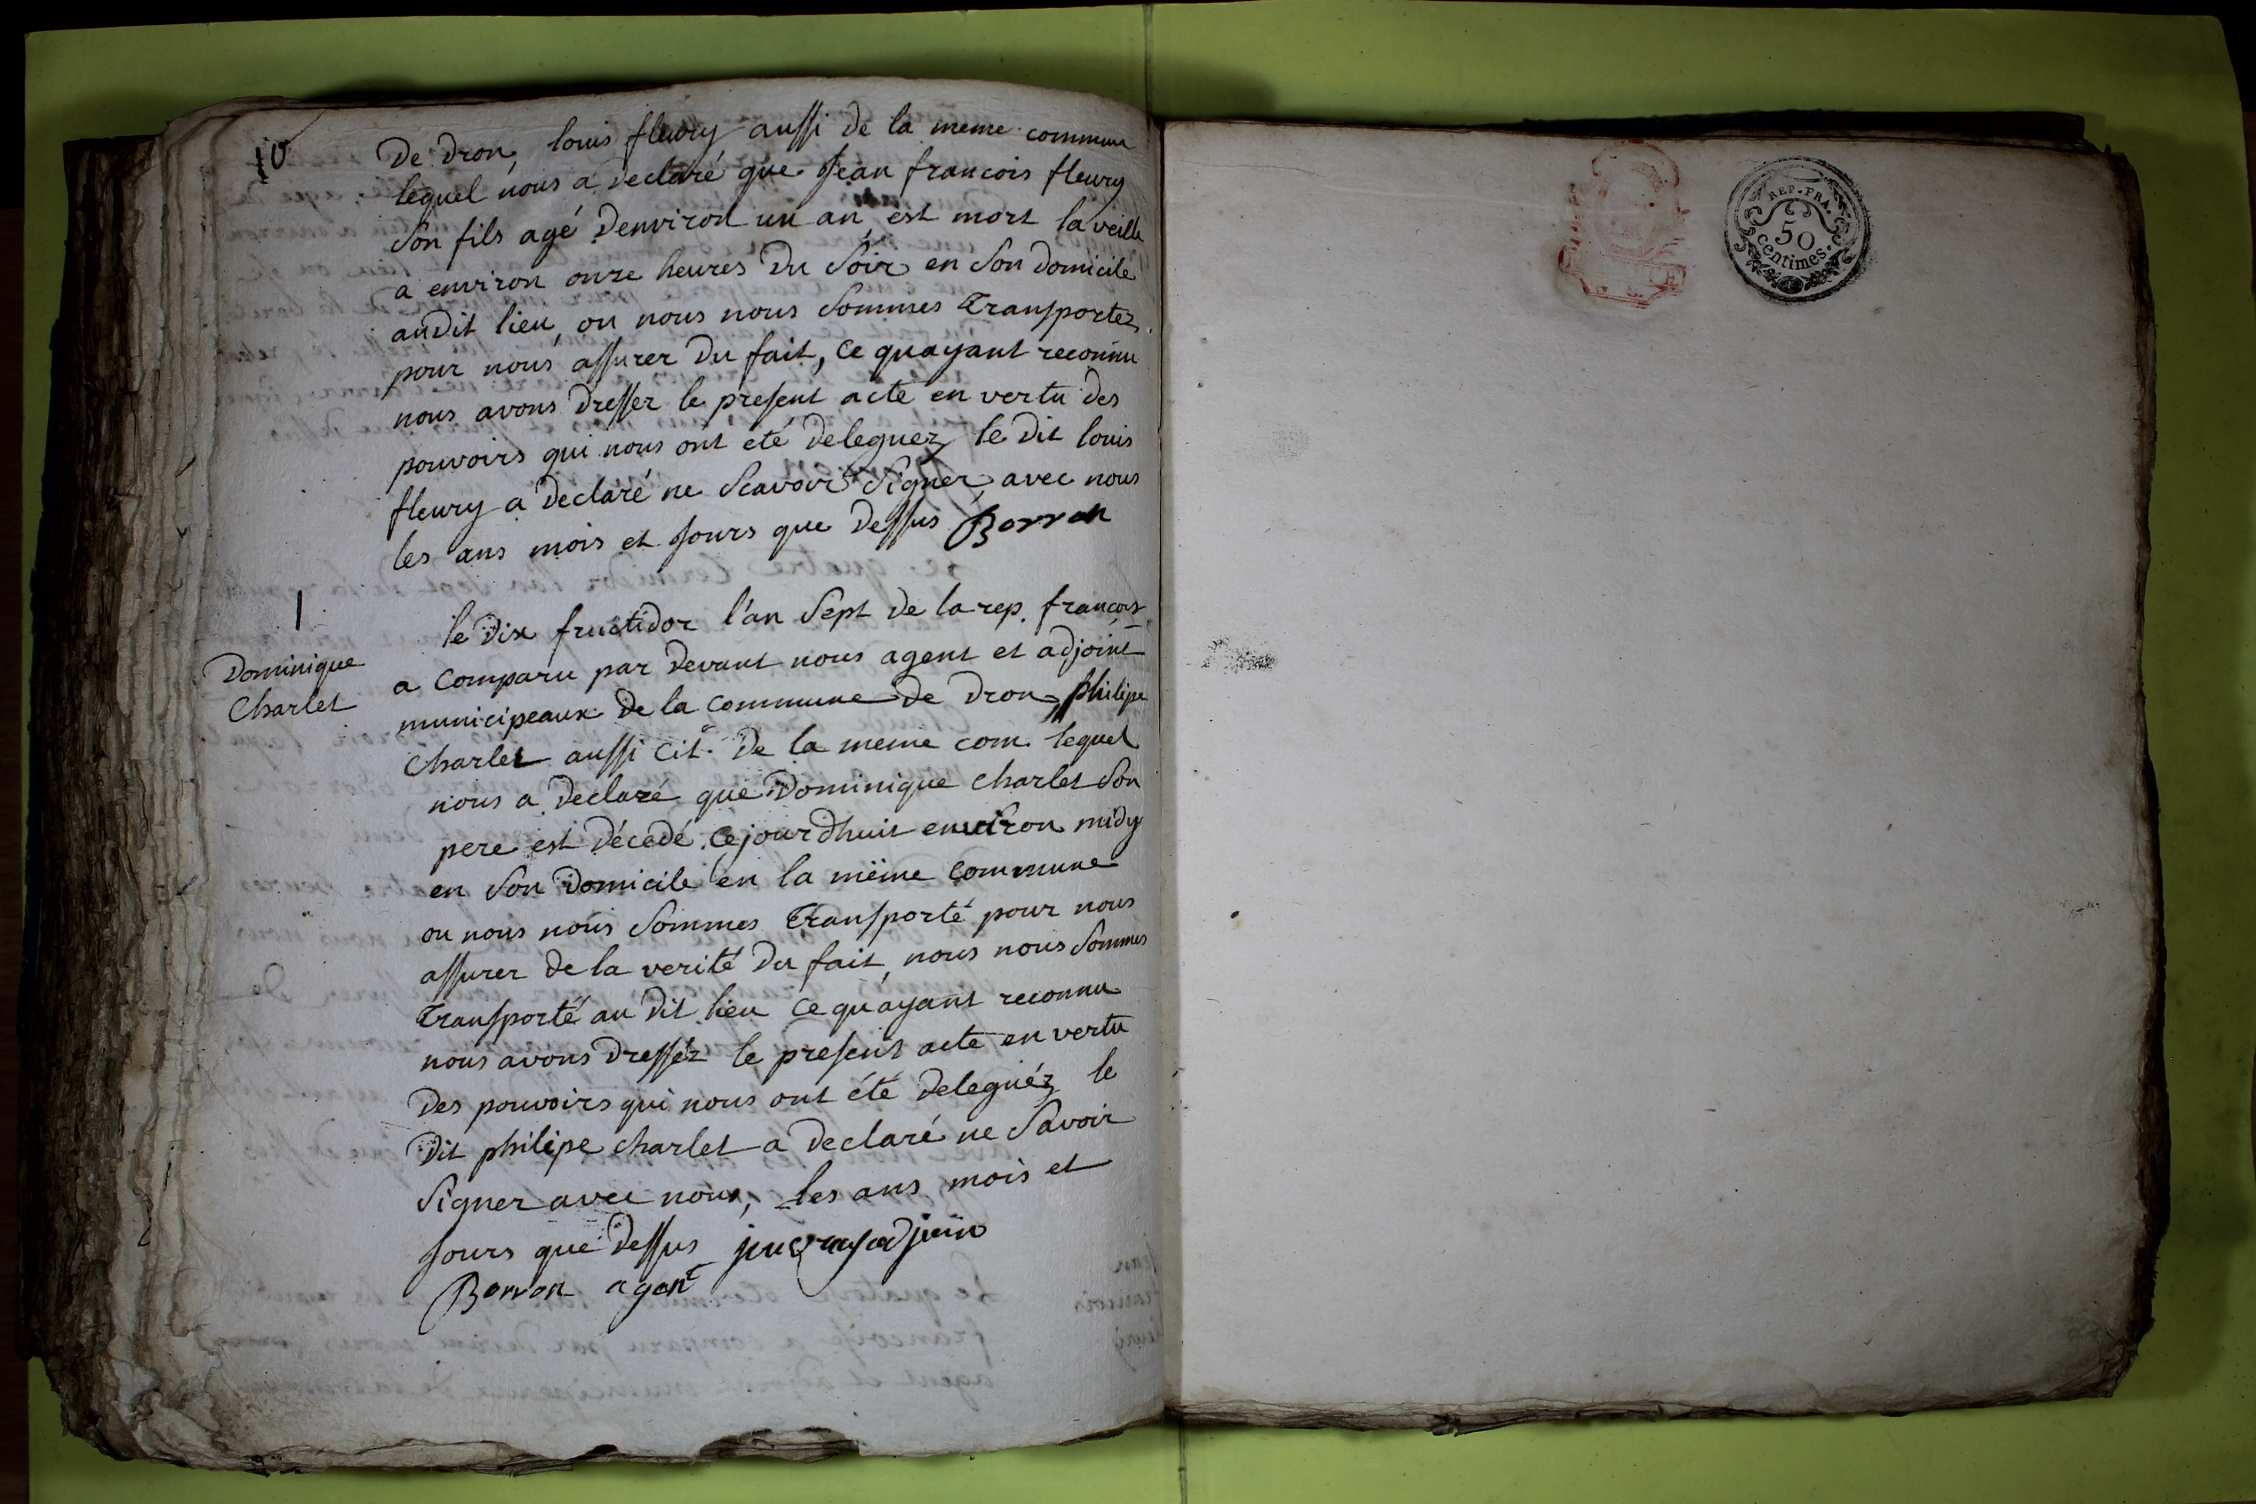 10
De dron, louis fleury aussi de la meme commune
lequel nous a declaré que Jean francois fleury
Son fils agé denviron un an est mort la veille
a environ onze heures du Soir en Son domicile
audit lieu, ou nous nous Sommes Transportez.
pour nous assurer du fait, ce quayant reconnu
nous avons dresser le present acte en vertu des
pouvoirs qui nous ont eté deleguez le dit louis
fleury a declaré ne Scavoir Signer, avec nous
les ans mois et Jours que dessus Borron
Dominique
Charlet
le dix fructidor l'an Sept de la rep. françois
a comparu par devant nous agent et adjoint
municipeaux de la commune de dron, philipe
Charlet aussi cit. de la meme com. lequel
nous a declaré que Dominique charlet Son
pere est décedé cejourdhuit environ midy
en Son domicile en la même commune
ou nous nous Sommes Transporté pour nous
assurer de la verité du fait, nous nous Sommes
Transporté au dit lieu ce qu'ayant reconnu
nous avons dresséz le present acte en vertu
des pouvoirs qui nous ont été deleguéz le
dit philipe charlet a declaré ne Savoir
Signer avec nous, les ans mois et
Jours que dessus
Borron agent
REP. FRA.
50
centimes.